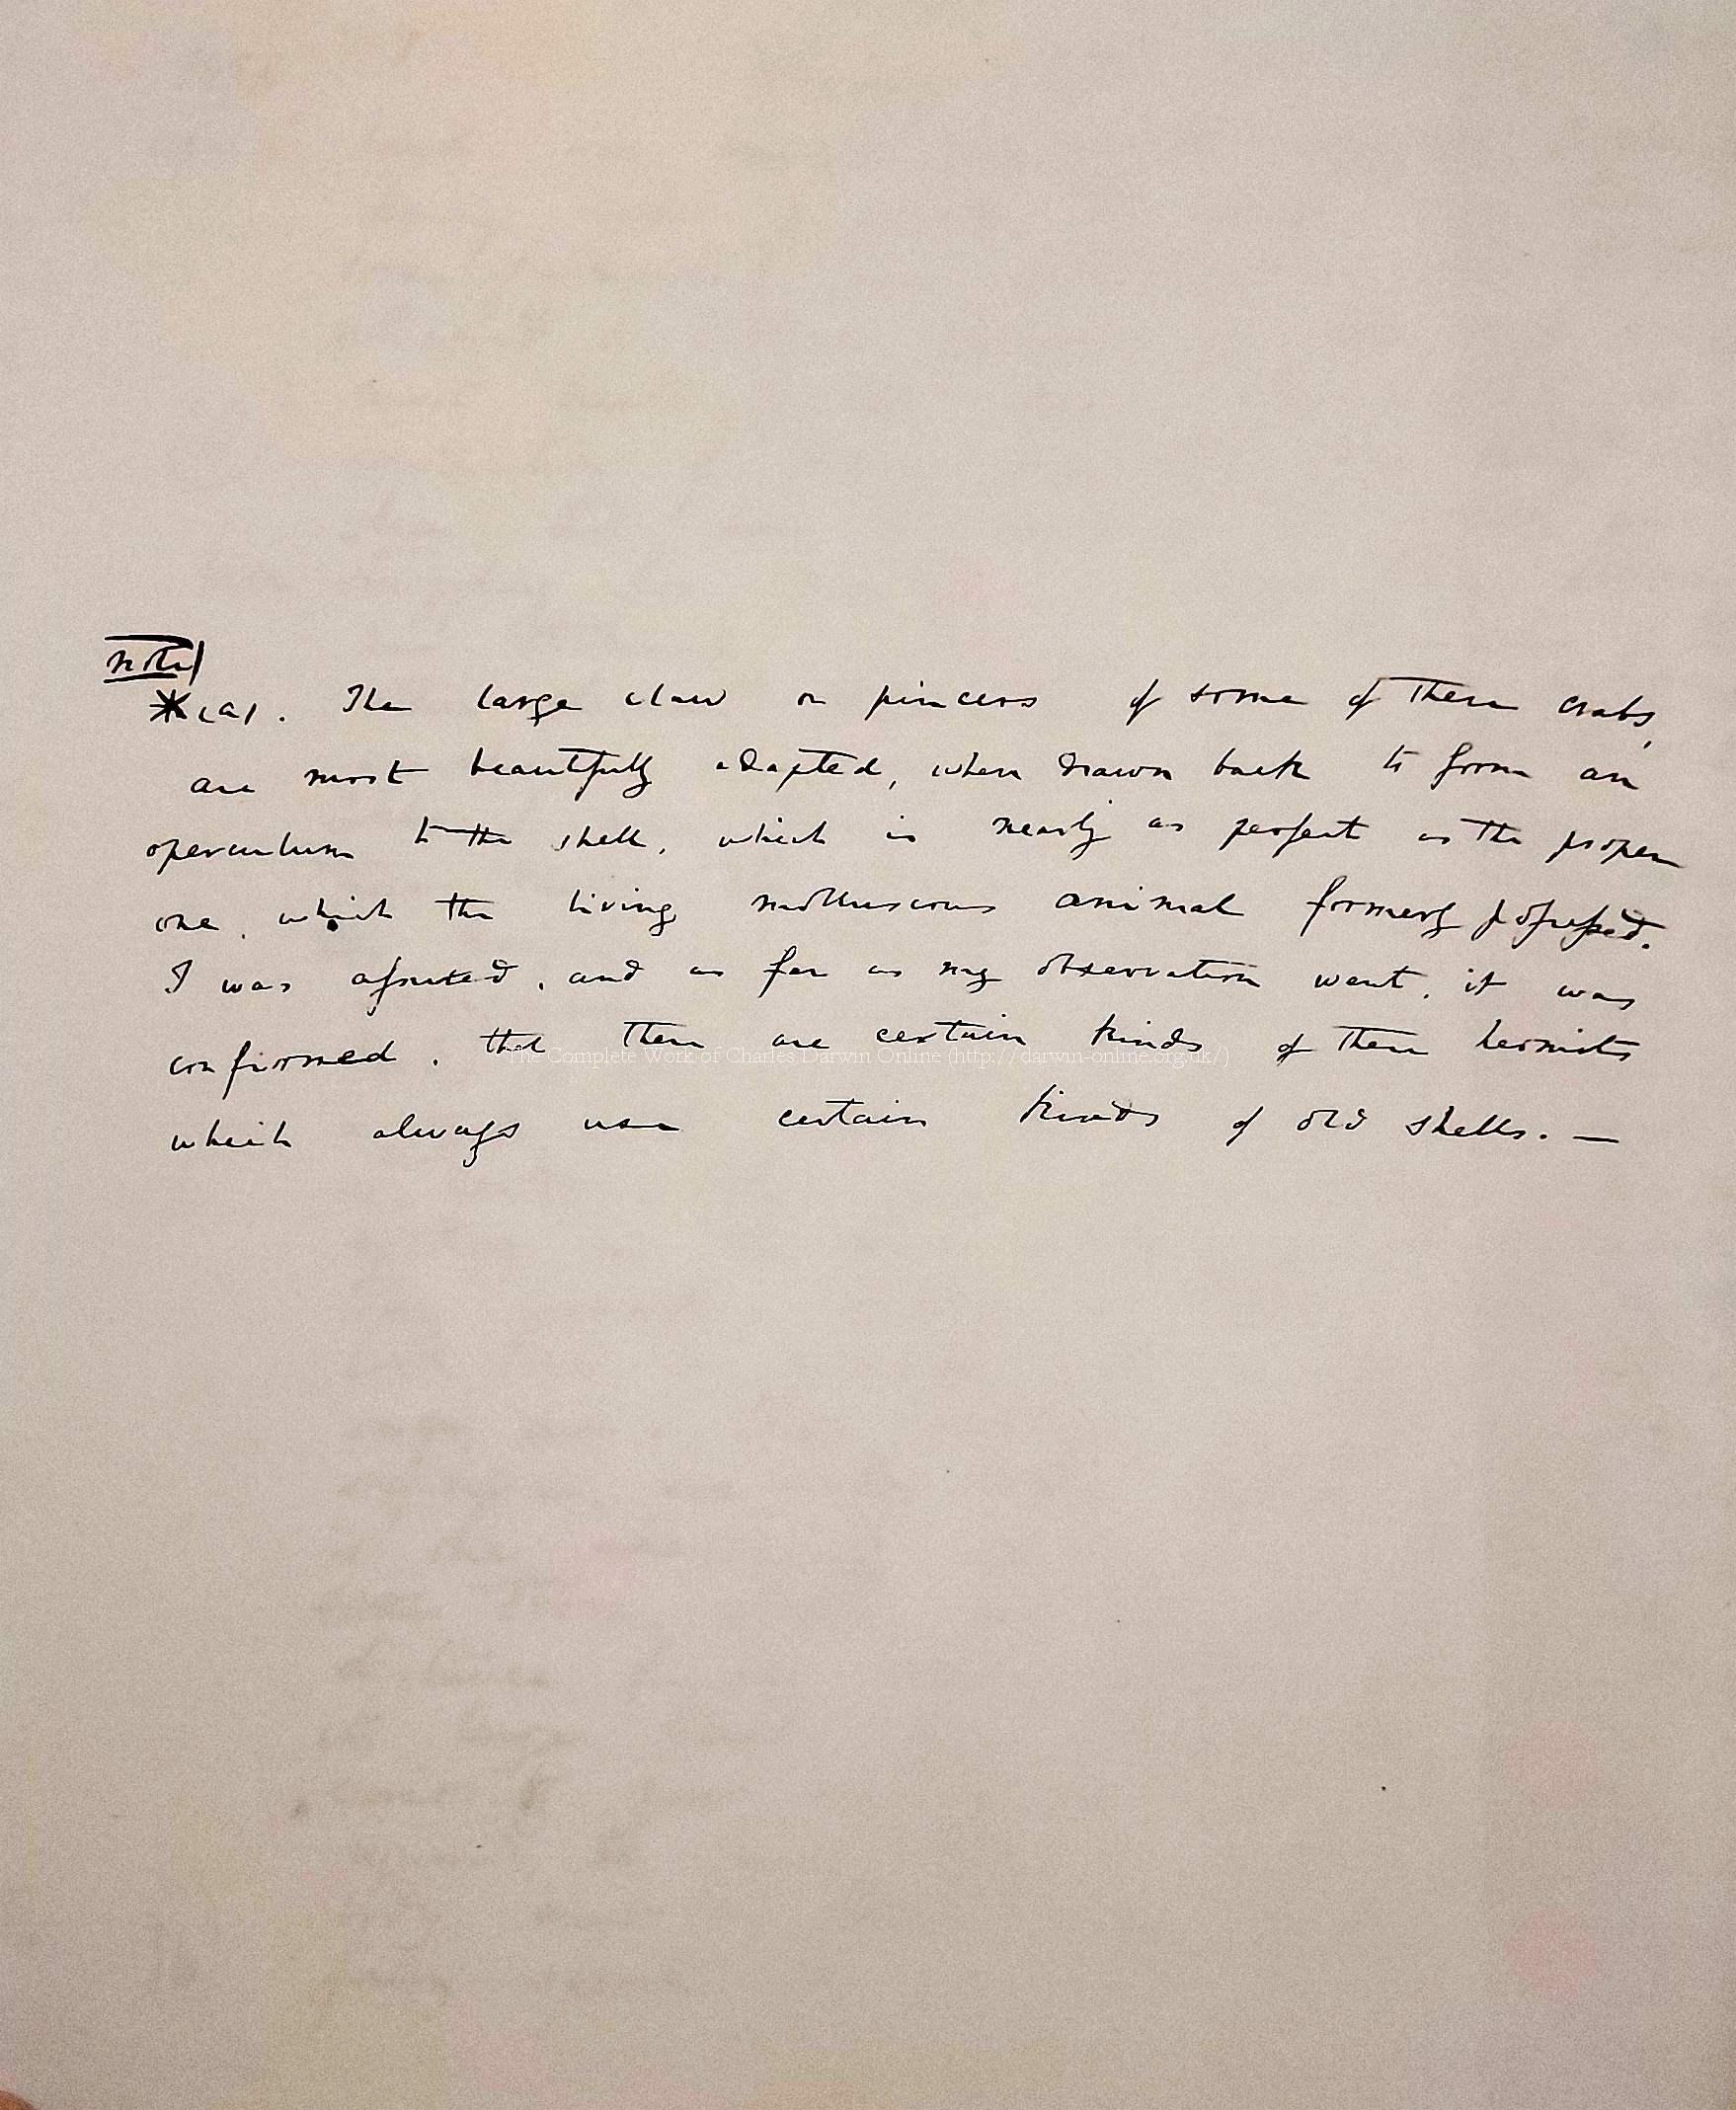 note)
*(a). The large claw or pincers of some of these crabs,
are most beautifully adapted, when drawn back to form an
operculum to the shell, which is nearly as perfect as the proper
one, which the living molluscous animal formerly possessed.
I was assured, and as far as my observation went, it was
confirmed, that there are certain kinds of these hermits
The Complete Work of Charles Darwin Online (http://darwin-online.org.uk/)
which always use certain kinds of old shells. —